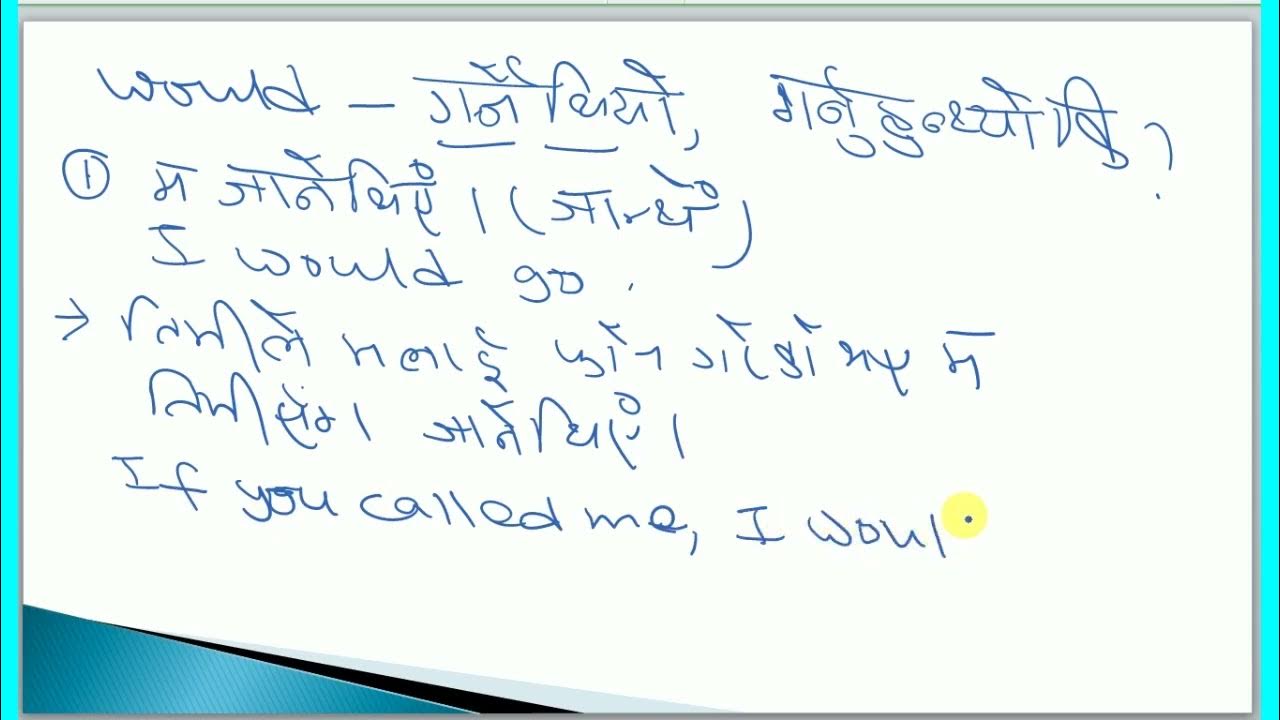 would – गर्ने थियो, गर्नुहुन्थ्यो कि ?
① म जानेथिएँ । (जान्थेँ)
I would go .
→ तिमीले मलाई फोन गरेको भए म
तिमीसँग जानेथिएँ ।
If you called me, I woul